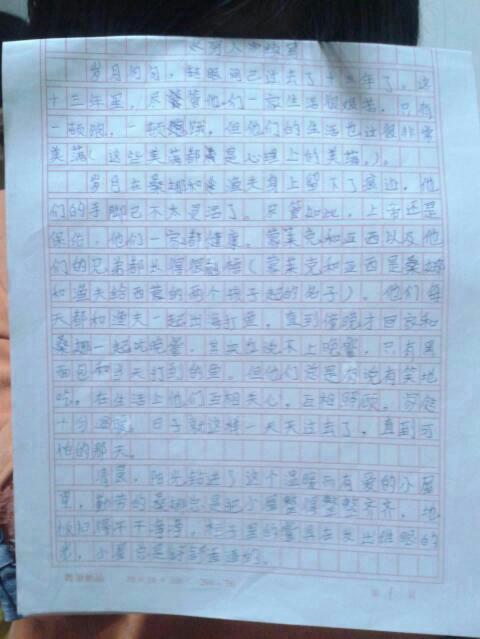 岁月匆匆，转眼间已过去了十三年了。这
十三年里，尽管他们一家生活很艰苦，只有
一顿饱，一顿饿。但他们的生活也过得非常
美满（这些美满都是心理上的美满。）。
岁月在桑娜和渔夫身上留下了痕迹。他
们的手脚已不太灵活了。尽管如此，上帝还是
保佑，他们一家都健康。蒙莱克和亚西以及他
们的兄弟都长得很（蒙莱克和亚西是桑娜
和渔夫给西蒙的两个孩子起的名子）。他们每
天都和渔夫一起出海打鱼。直到傍晚才回家和
桑娜一起吃晚餐，其实也说不上晚餐，只有黑
面包和当天打到的鱼。但他们总是有说有笑地
吃。在生活上他们互相关心，互相照顾。
十分温暖。日子就这样一天天过去了，直到可
怕的那天。
清晨，阳光钻进了这个温暖而有爱的小屋
里，勤劳的桑娜总是把小屋整得整整齐齐，地
扫得干干净净，里的餐具在发出耀眼的
光，小屋总是舒舒适适的。
第 1 页